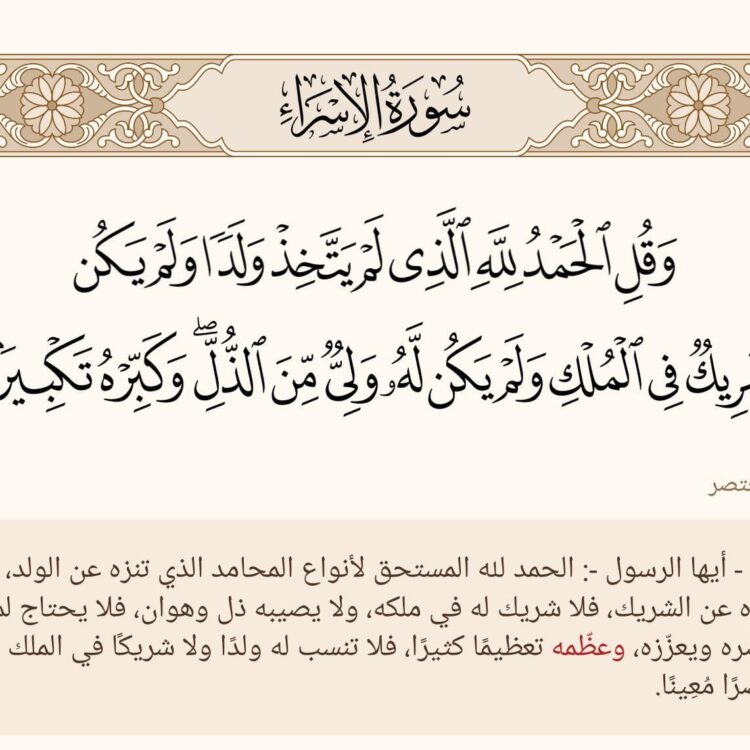 سُورَةُ الإِسْرَاءِ
وَقُلِ ٱلْحَمْدُ لِلَّهِ ٱلَّذِى لَمْ يَتَّخِذْ وَلَدًا وَلَمْ يَكُن
فِى ٱلْمُلْكِ وَلَمْ يَكُن لَّهُۥ وَلِىٌّ مِّنَ ٱلذُّلِّ ۖ وَكَبِّرْهُ
- أيها الرسول -: الحمد لله المستحق لأنواع المحامد الذي تنزه عن الولد،
عن الشريك، فلا شريك له في ملكه، ولا يصيبه ذل وهوان، فلا يحتاج
ويعزّزه، وعظّمه تعظيمًا كثيرًا، فلا تنسب له ولدًا ولا شريكًا في الملك
مُعِينًا.